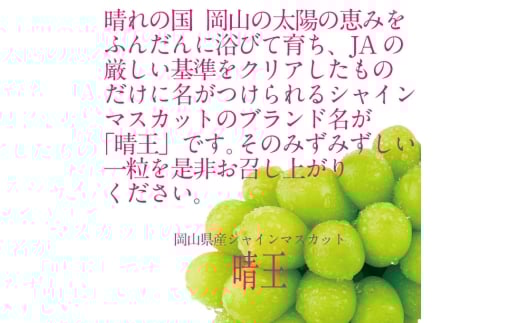 晴れの国 岡山の太陽の恵みを
ふんだんに浴びて育ち、JAの
厳しい基準をクリアしたもの
だけに名がつけられるシャイン
マスカットのブランド名が
「晴王」です。そのみずみずしい
一粒を是非お召し上がり
ください。
岡山県産シャインマスカット
晴王